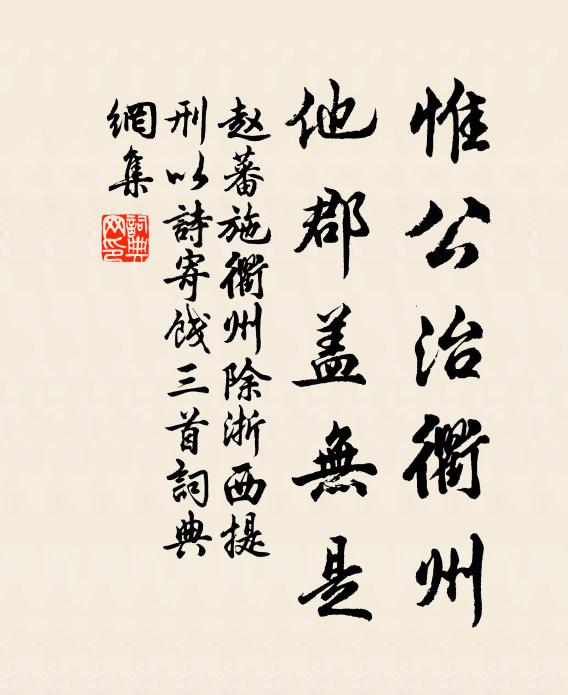 惟公治衢州
他郡盖無是
赵蕃施衢州除浙西提
刑以詩寄餞三首詞典
網集
詞典網印